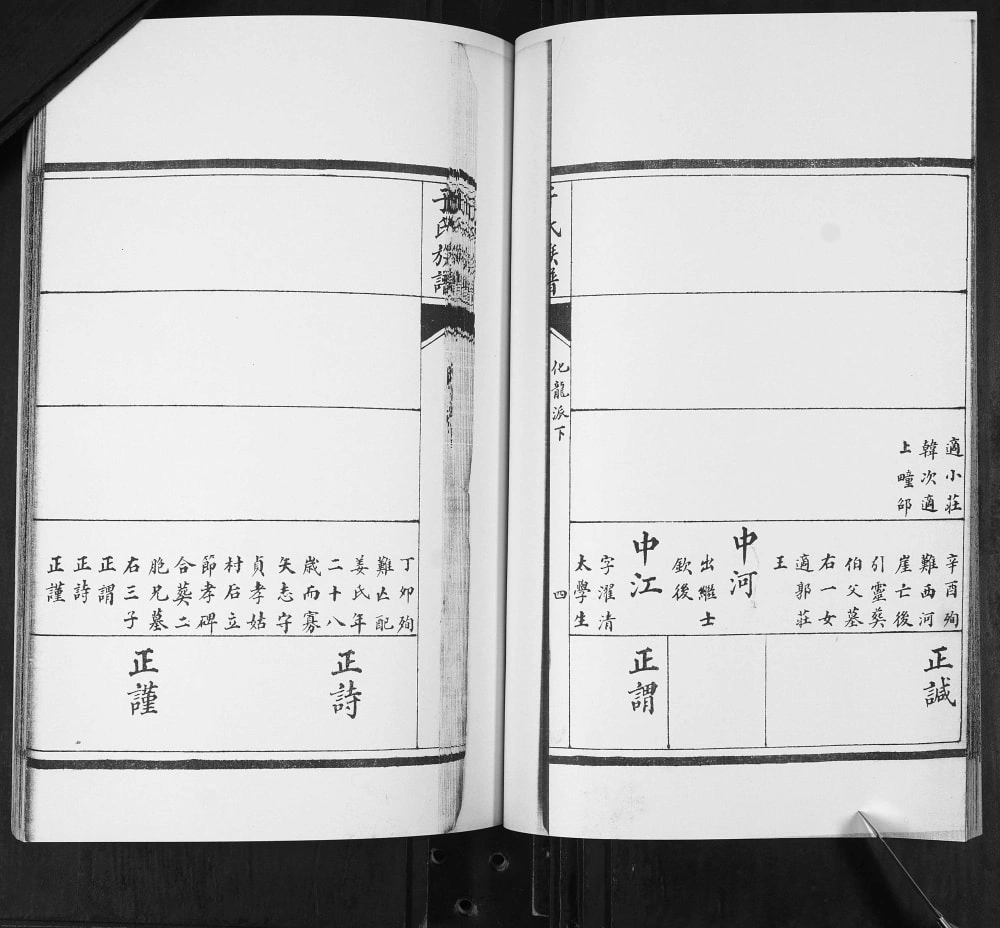 适小莊
韓次適
上疃邵
辛酉殉
難西河
崖亡後
引靈奠
伯父墓
右一女
適郭莊
王
中河
出繼士
欽後
中江
字濯清
太學生
正誠
正謂
氏族譜
化龍派下
四
于氏族譜
丁卯殉
難亡配
姜氏年
二十八
歲而寡
矢志守
貞孝姑
村后立
節孝碑
合葬二
胞兄墓
右三子
正謂
正詩
正謹
正詩
正謹